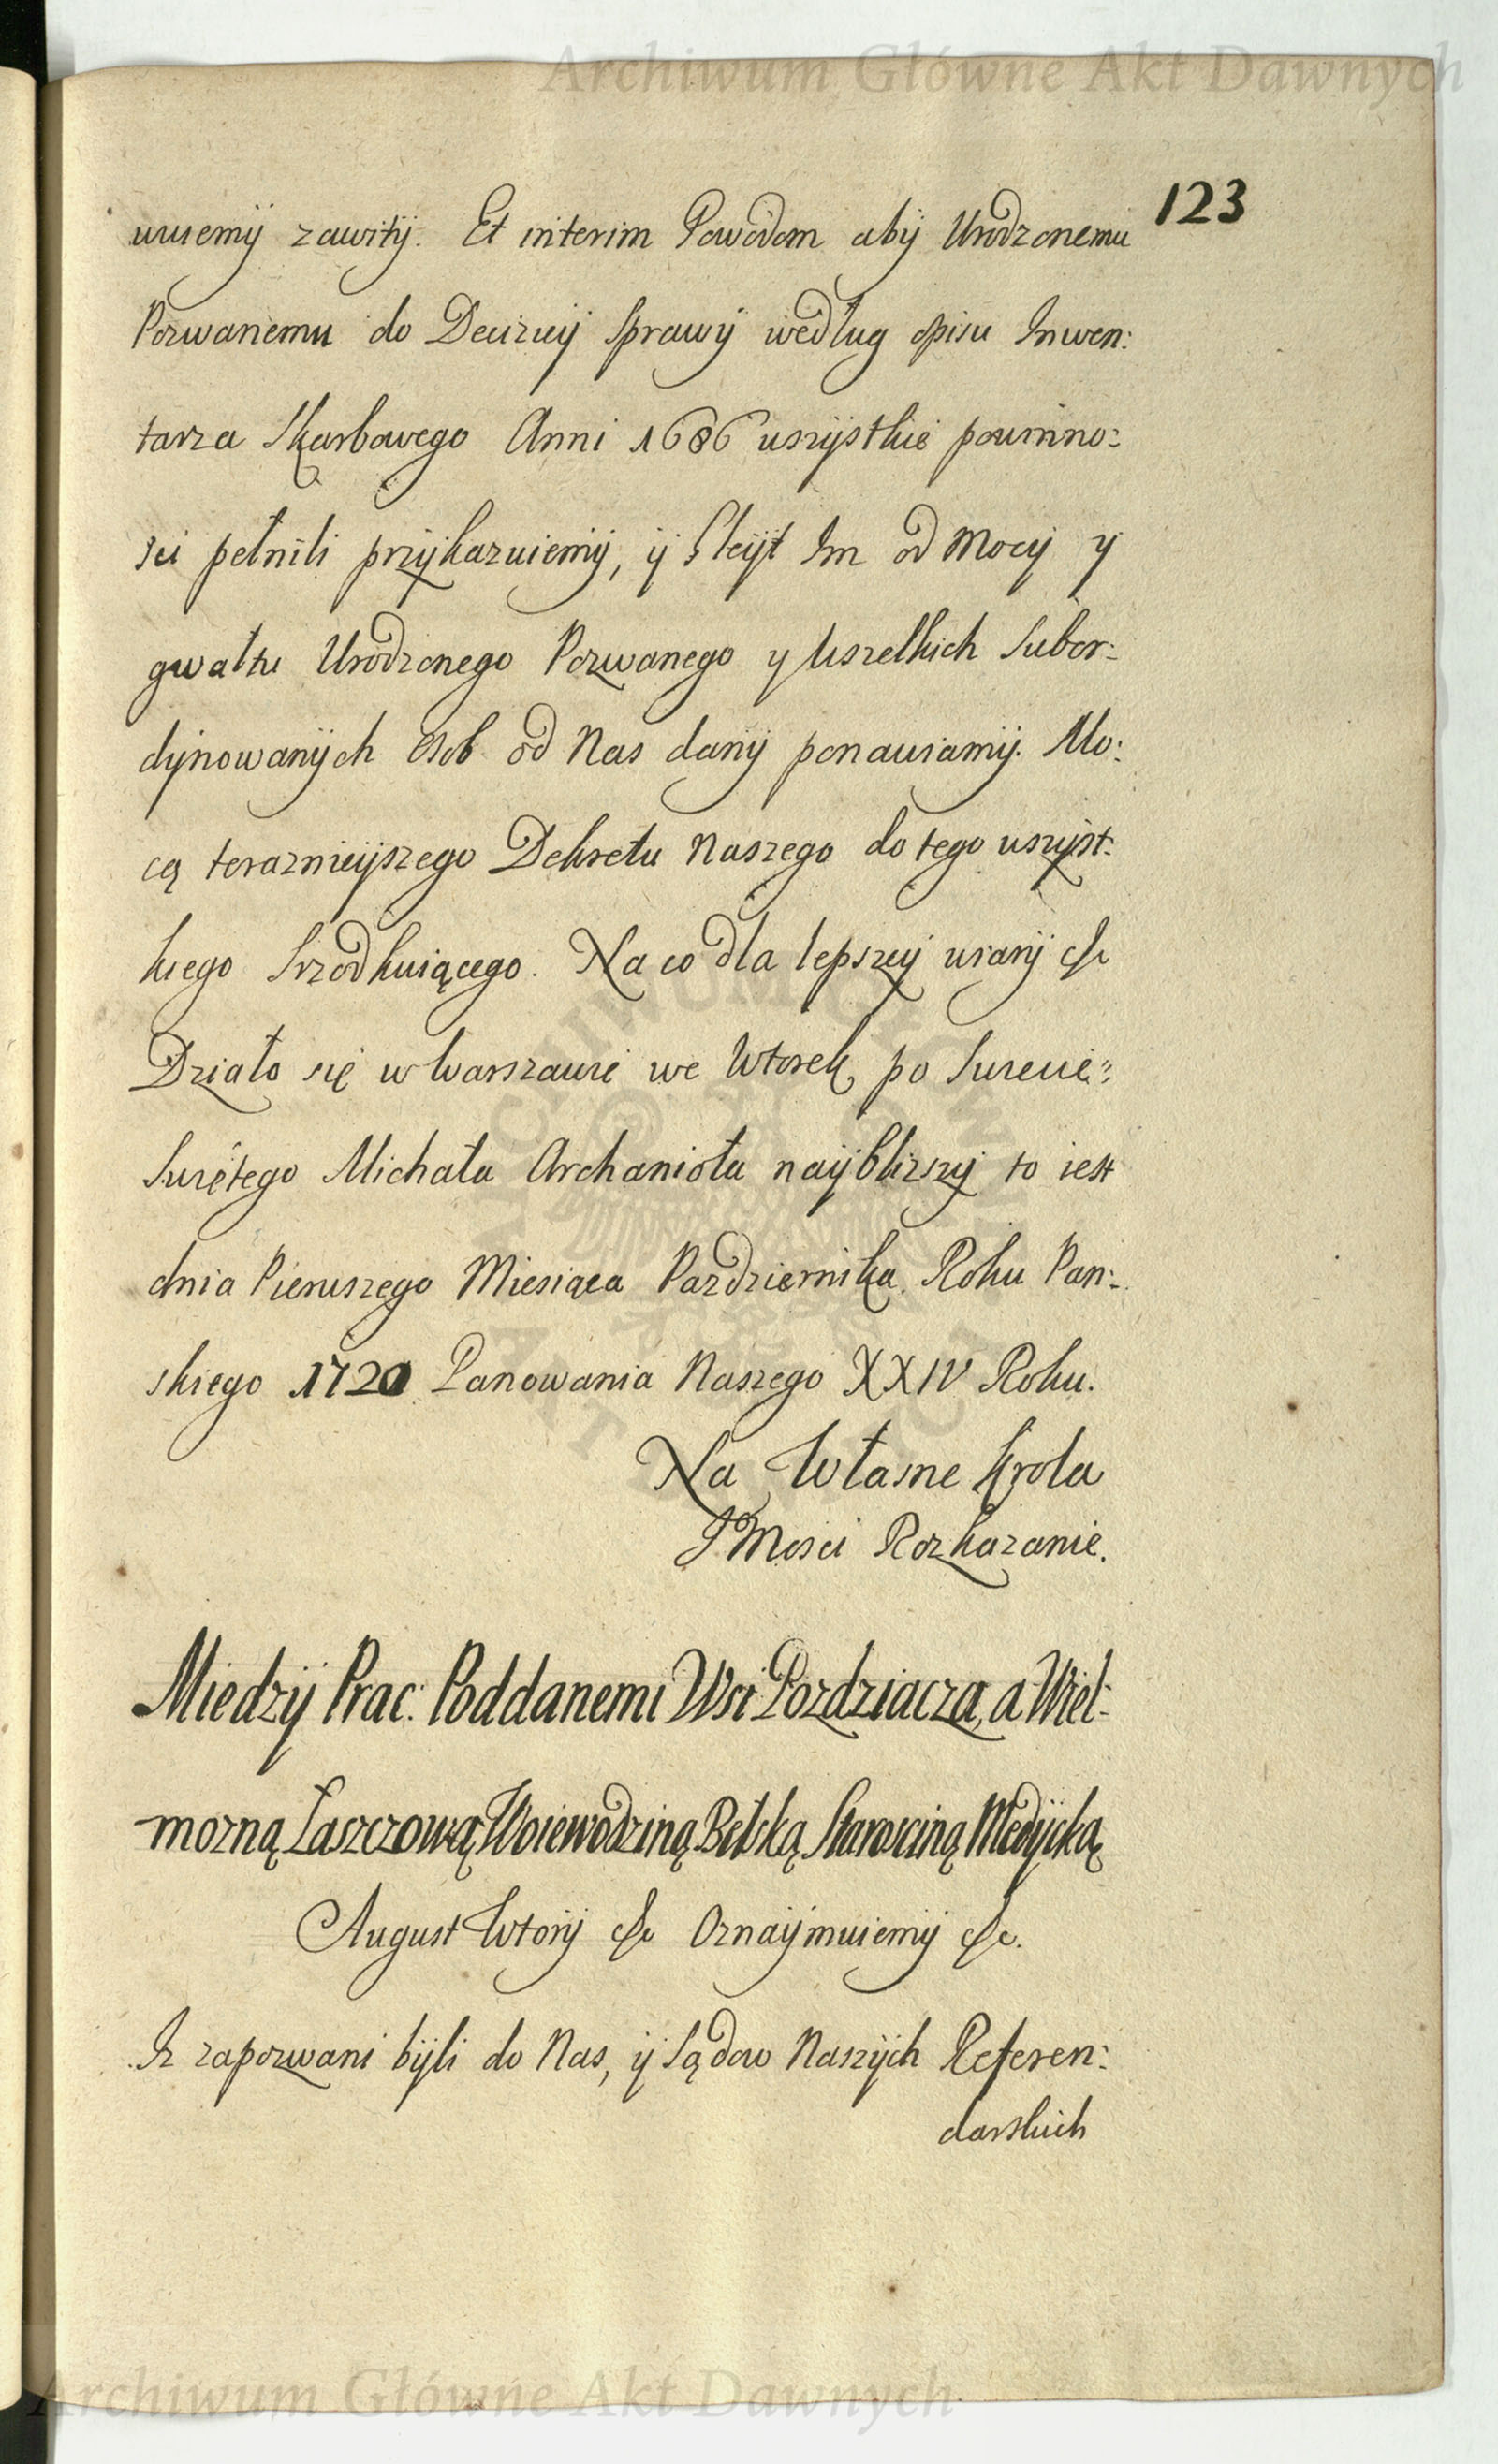 Archiwum Główne Akt Dawnych
123
uiemÿ zawitÿ. Et interim Powodom abÿ Urodzonemu
Pozwanemu do Decizyÿ Sprawÿ według opisu Inwen:
tarza Skarbowego Anni 1686 wszÿstkie powinno:
sci pełnili przÿkazuiemÿ, ÿ Gleyt Im od Mocÿ y
gwałtu Urodzonego Pozwanego y wszelkich Subor:
dÿnowanÿch Osob od Nas danÿ ponawiamÿ. Mo:
cą teraznieÿszego Dekretu Naszego do tego wszÿst:
kiego Srzodkuiącego. Na co dla lepszeÿ wiarÿ &c
Działo się w Warszawie we Wtorek po Swięcie
Swiętego Michała Archanioła naÿblizszÿ to iest
dnia Pierwszego Miesiąca Pazdziernika Roku Pan:
skiego 1720 Panowania Naszego XXIV Roku.
Na Własne Krola
JMosci Rozkazanie.
Miedzÿ Prac: Poddanemi Wsi Pozdziacza, a Wiel:
mozną Łaszczową Woiewodziną Bełską Starosciną Medÿcką
August Wtorÿ &c Oznaÿmuiemÿ &c.
Iz zapozwani bÿli do Nas, ÿ Sądow Naszÿch Referen:
darskich
Archiwum Główne Akt Dawnych